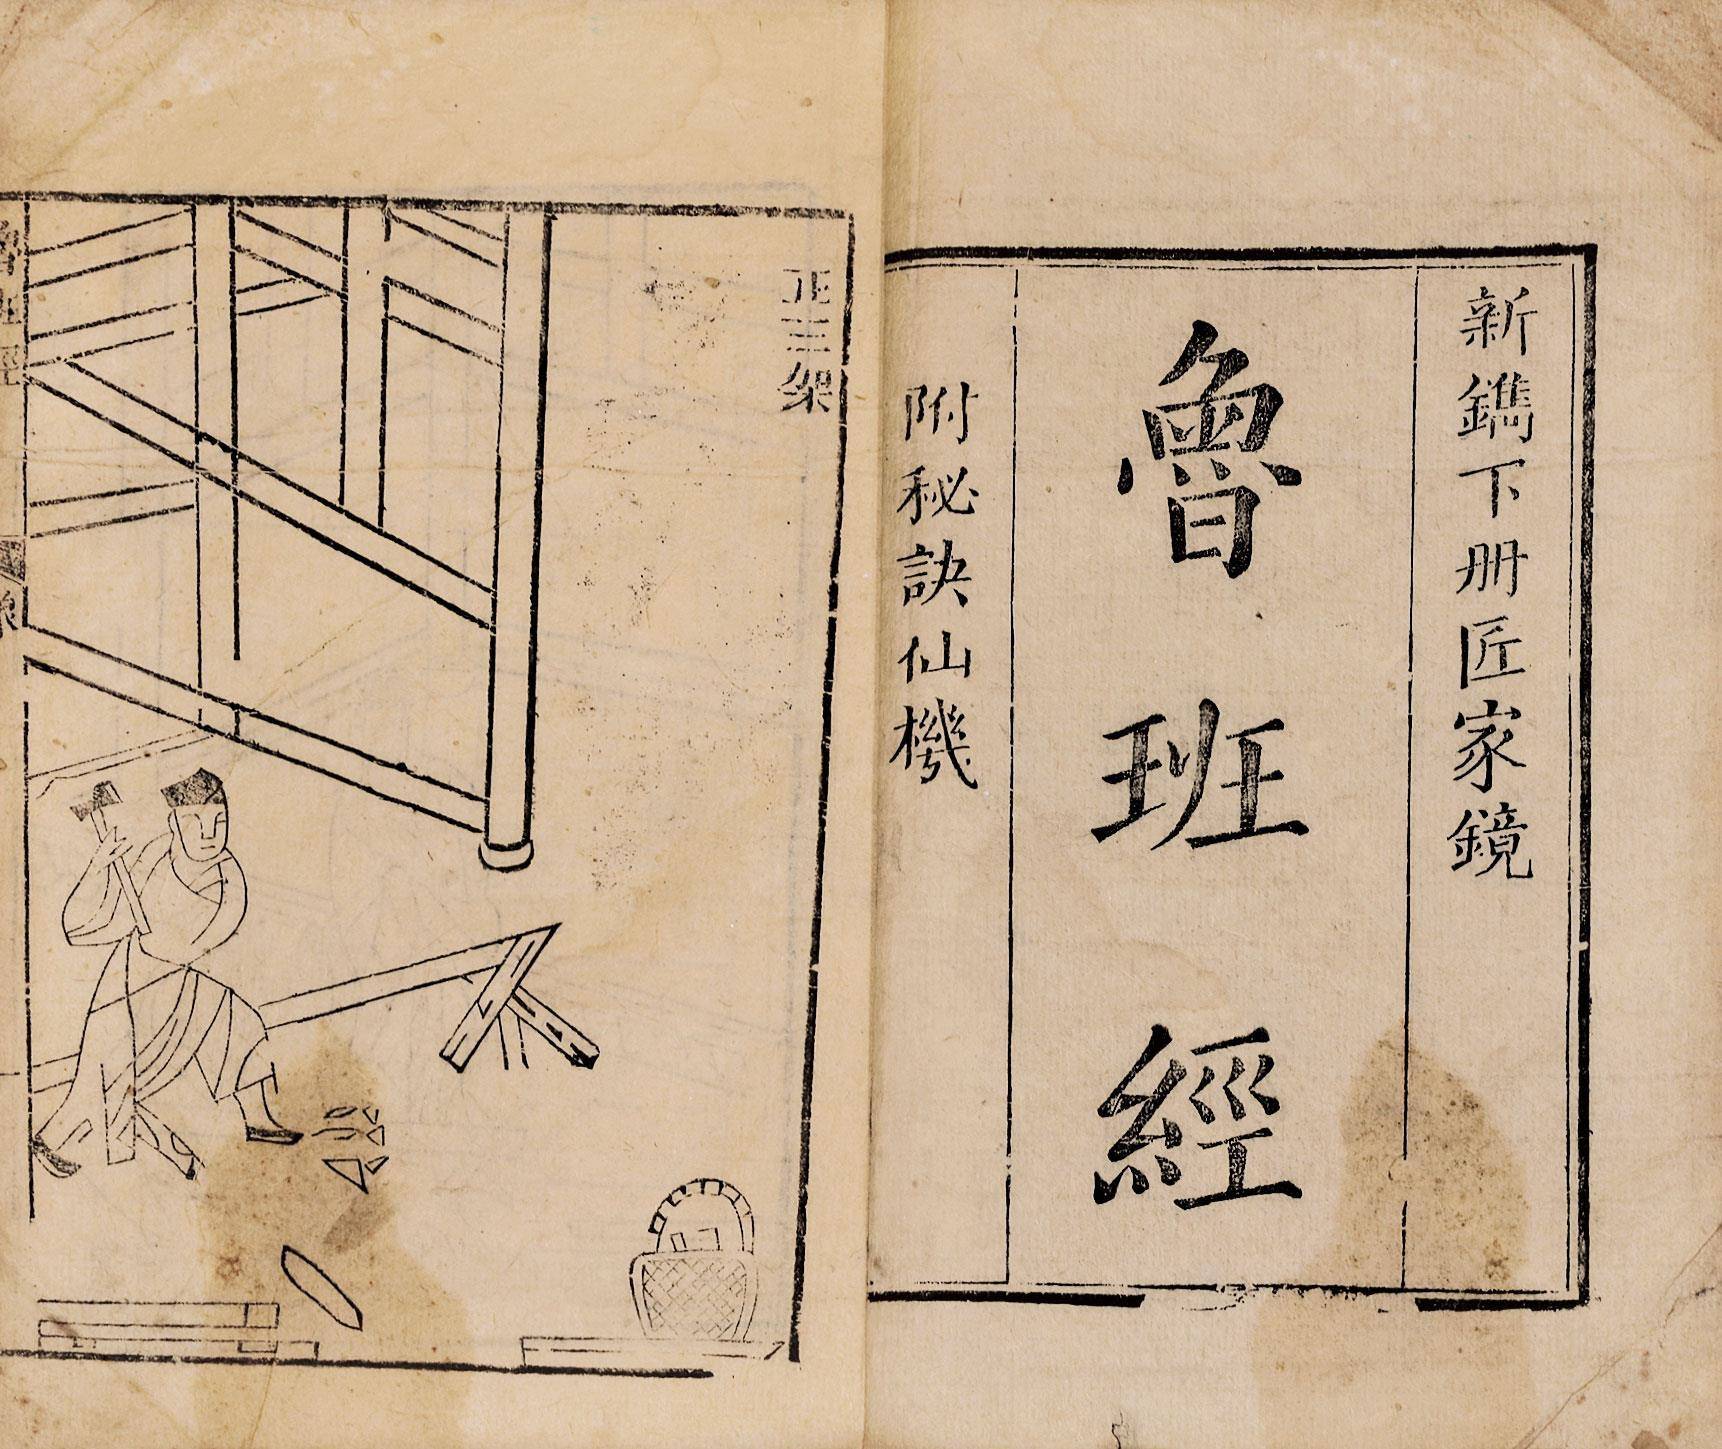 新鐫下册匠家鏡
魯班經
附秘訣仙機
正三架
魯班經